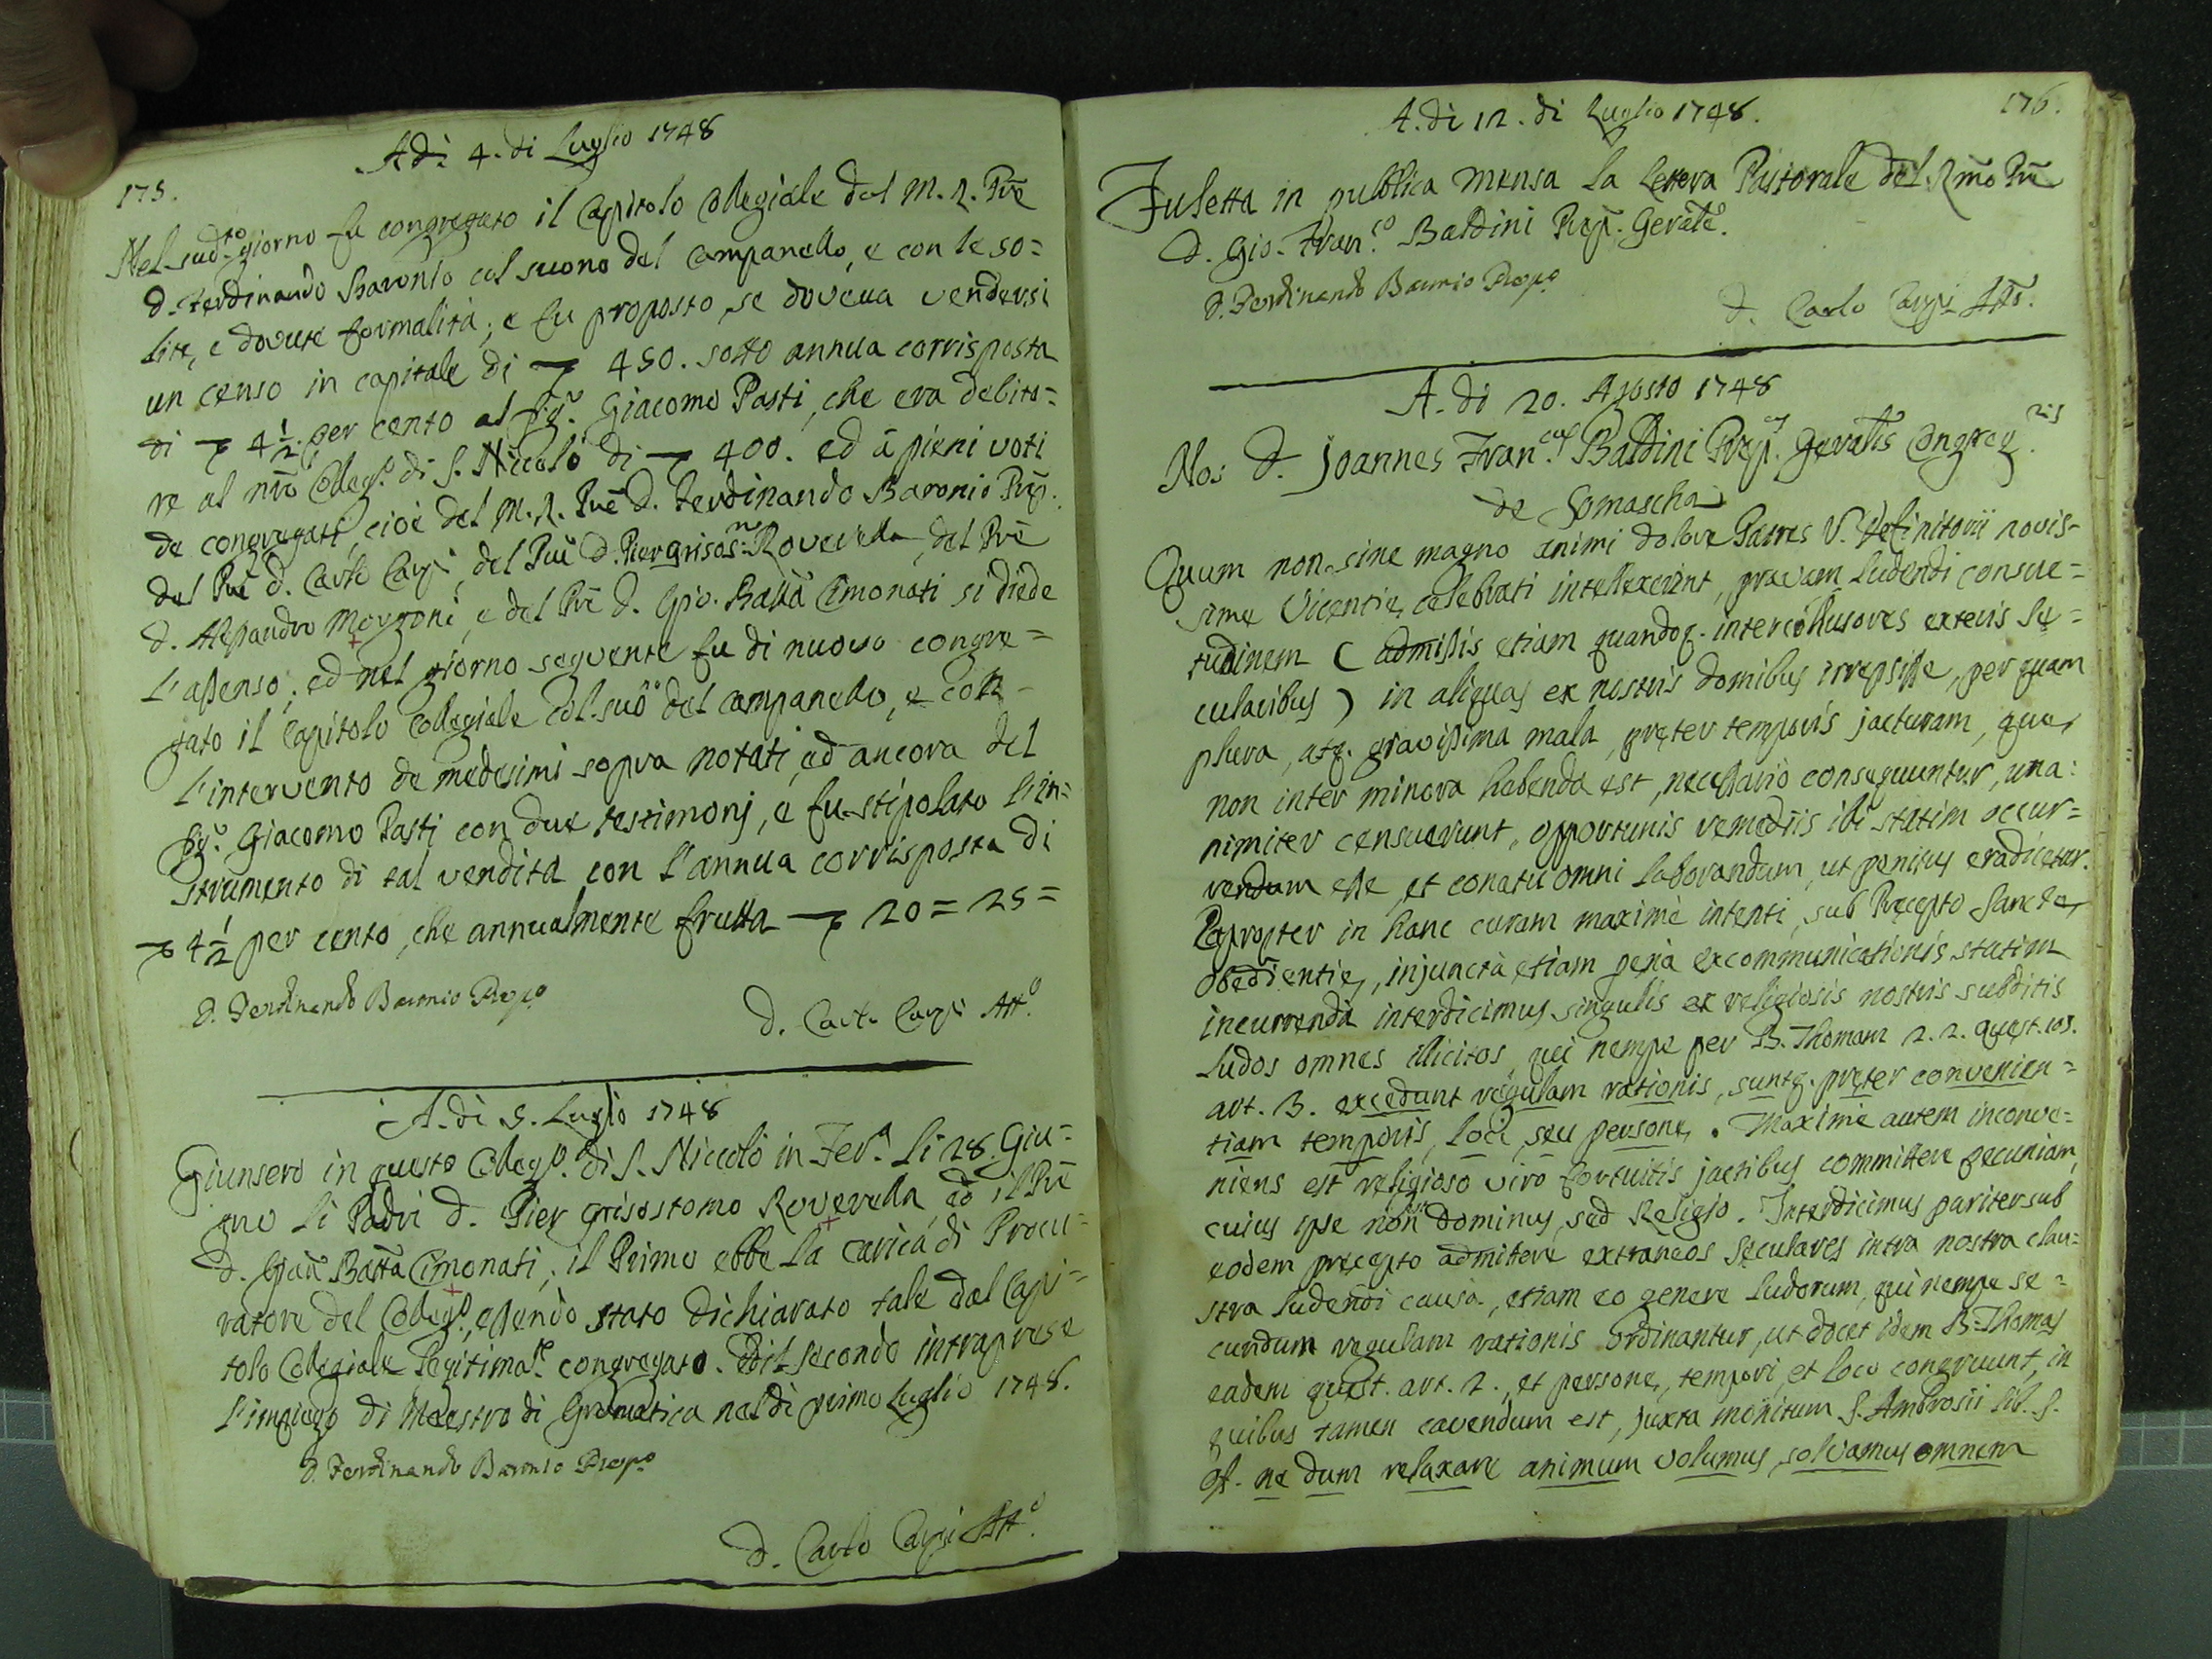 175.
Adì 4. di Luglio 1748
Nel sud.to giorno fu congregato il Capitolo Collegiale dal M. R. Prē
D. Ferdinando Baronio col suono del Campanello, e con le so=
lite, e dovute formalità; e fu proposto se doveva vendersi
un censo in capitale di 450. sotto annua corrisposta
di 4½ per cento al Sig.r Giacomo Pasti, che era debito=
re al nrō Colleg.o di S. Niccolò di 400. ed à pieni voti
de congregati, cioè del M. R. Prē D. Ferdinando Baronio Prēp.
del Prē D. Carlo Carpi, del Prē D. Piergrisos.mo Roverella, del Prē
D. Alesandro Moroni, e del Prē D. Gio. Battā Cimonati si diede
l'assenso; ed nel giorno seguente fu di nuovo congre=
gato il Capitolo Collegiale col suō del campanello, e con
l'intervento de medesimi sopra notati, ed ancora del
Sig.r Giacomo Pasti con due testimonj, e fu stipolato l'in=
strumento di tal vendita con l'annua corrisposta di
4½ per cento, che annualmente frutta 20=25=
D. Ferdinando Baronio Prep.o
D. Carlo Carpi Att.o
A. dì 5. Luglio 1748
Giunsero in questo Colleg.o di S. Niccolò in Fer.a li 28. Giu=
gno li Padri D. Pier Grisostomo Roverella, ed il Prē
D. Giañ Battā Cimonati; il Primo ebbe la carica di Procu=
ratore del Colleg.o, essendo stato dichiarato tale dal Capi=
tolo Collegiale legitima.te congregato. Ed il secondo intraprese
l'impiego di Maestro di Gramatica nel dì primo Luglio 1748.
D. Ferdinando Baronio Prep.o
D. Carlo Carpi Att.o
176.
A. di 12. di Luglio 1748.
Fu letta in publica mensa la Lettera Pastorale del Rmō Prē
D. Gio. Fran.co Baldini Prep. Gerāle.
D. Ferdinando Baronio Prep.o
D. Carlo Carpi Att.o
A. dì 20. Agosto 1748
Nos D. Joannes Fran.cus Baldini Prep.us Geralis Congreg.nis
de Somascha
Quum non sine magno animi dolore Patres V. Definitorii novis=
sime Vicentiæ celebrati intellexerint, pravam ludendi consue=
tudinem (admissis etiam quandoq. inter collusores exteris sæ=
cularibus) in aliquas ex nostris domibus irrepsisse, per quam
plura, atq. gravissima mala, præter temporis jacturam, quæ
non inter minora habenda est, necessario consequuntur, una=
nimiter censuerunt, opportunis remediis ibi statim occur=
rendum esse, et conatu omni laborandum, ut penitus eradicetur.
Eapropter in hanc curam maximè intenti, sub Præcepto Sanctæ
Obedientiæ, injunctà etiam penà excommunicationis statim
incurrendà interdicimus singulis ex religiosis nostris subditis
ludos omnes illicitos, qui nempe per B. Thomam 2. 2. quæst. 168.
art. 3. excedunt regulam rationis, suntq. præter convenien=
tiam temporis, loci, seu personæ. Maximè autem inconve=
niens est religioso viro fortuitis jactibus committere pecuniam,
cuius ipse non Dominus, sed Religio. Interdicimus pariter sub
eodem præcepto admittere extraneos Sæculares intra nostra clau=
stra ludendi causà, etiam eo genere ludorum, qui nempe se=
cundum regulam rationis ordinantur, ut docet idem B. Thomas
eadem quæst. art. 2., et personæ, tempori, et loco congruunt, in
quibus tamen cavendum est, juxta monitum S. Ambrosii lib. p.
of. ne dum relaxare animum volumus, solvamus omnem